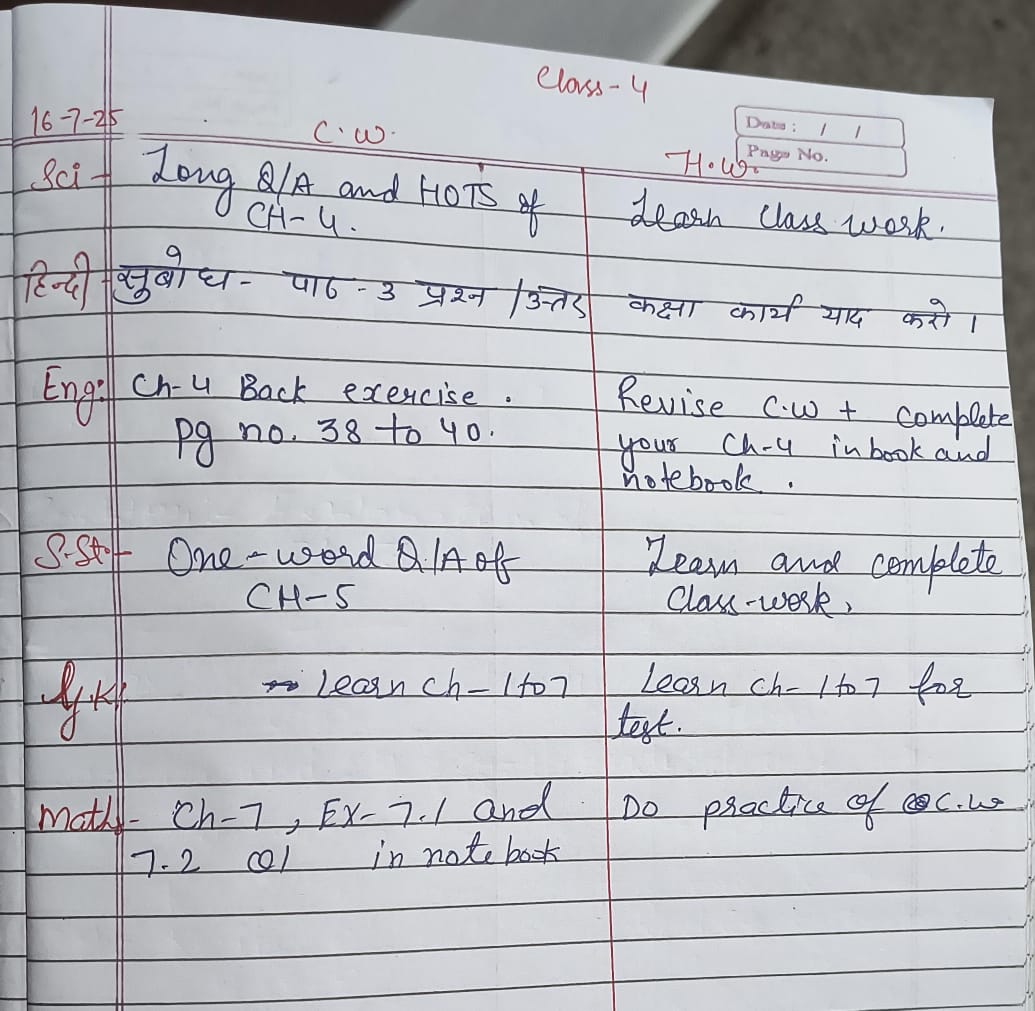 Class-4
Date: / /
Page No.
16-7-25
C.W.
H.W.
Sci - Long Q/A and HOTS of
CH-4.
Learn Class work.
हिन्दी सुबोध - पाठ-3 प्रश्न/उत्तर
कक्षा कार्य याद करो।
Eng: Ch-4 Back exercise.
Pg no. 38 to 40.
Revise C.W + complete
your Ch-4 in book and
notebook.
S.St. - One-word Q/A of
CH-5
Learn and complete
Class-work.
G.K. Learn ch-1 to 7
Learn ch-1 to 7 for
test.
Math - Ch-7, EX-7.1 and
7.2 Q1 in notebook
Do practice of C.W